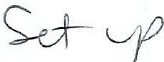 Set up